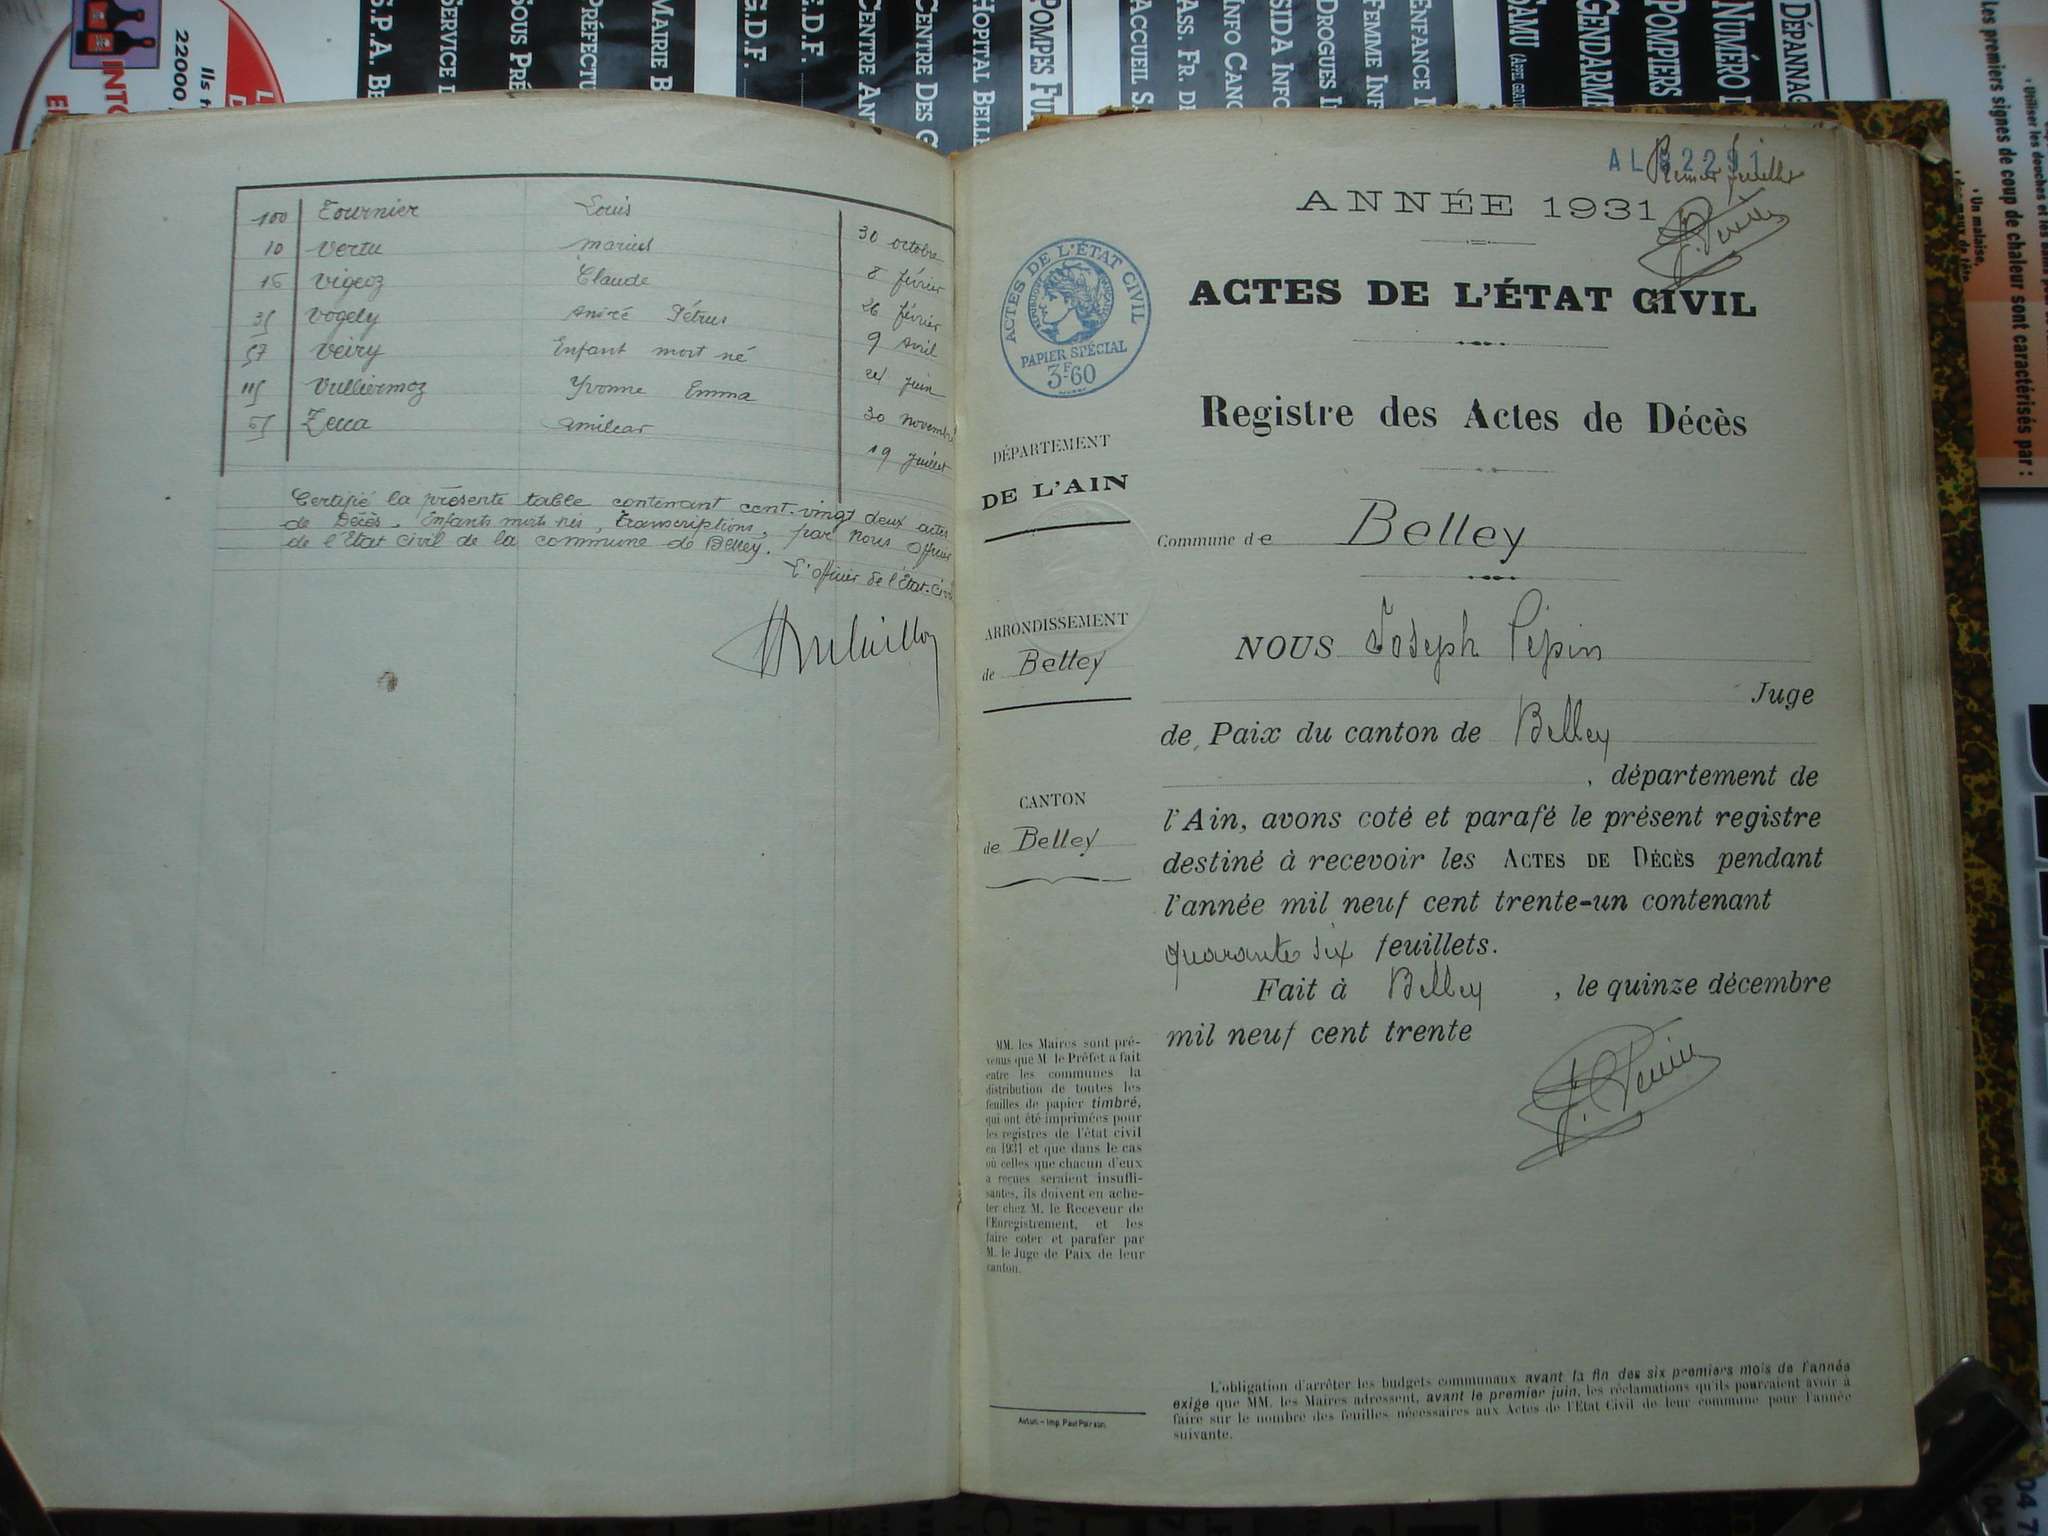 100 Tournier Louis 30 octobre
10 Vertu Marius 8 février
16 Vigeoz Claude 26 février
35 Vogely André Pétrus 9 avril
57 Veiry Enfant mort né 24 juin
115 Vulliermoz Yvonne Emma 30 novembre
65 Zecca Amilcar 19 juillet
Certifié la présente table contenant cent-vingt deux actes
de Décès, Enfants morts nés, Transcriptions, par nous Officier
de l'Etat Civil de la commune de Belley.
L'officier de l'Etat-Civil
Premier feuillet
ANNÉE 1931
ACTES DE L'ÉTAT CIVIL
ACTES DE L'ÉTAT CIVIL
PAPIER SPÉCIAL
3F60
Registre des Actes de Décès
DÉPARTEMENT
DE L'AIN
Commune de Belley
ARRONDISSEMENT
de Belley
CANTON
de Belley
NOUS Joseph Pépin
Juge
de Paix du canton de Belley
, département de
l'Ain, avons coté et parafé le présent registre
destiné à recevoir les ACTES DE DÉCÈS pendant
l'année mil neuf cent trente-un contenant
quarante six feuillets.
Fait à Belley , le quinze décembre
mil neuf cent trente
MM. les Maires sont pré-
venus que M. le Préfet a fait
entre les communes la
distribution de toutes les
feuilles de papier timbré,
qui ont été imprimées pour
les registres de l'état civil
en 1931 et que dans le cas
où celles que chacun d'eux
a reçues seraient insuffi-
santes, ils doivent en ache-
ter chez M. le Receveur de
l'Enregistrement, et les
faire coter et parafer par
M. le Juge de Paix de leur
canton.
L'obligation d'arrêter les budgets communaux avant la fin des six premiers mois de l'année
exige que MM. les Maires adressent, avant le premier juin, les réclamations qu'ils pourraient avoir à
faire sur le nombre des feuilles nécessaires aux Actes de l'Etat Civil de leur commune pour l'année
suivante.
S.P.A. BE
SERVICE
SOUS PRÉ
PRÉFECTU
MAIRIE B
G.D.F.
E.D.F.
CENTRE AN
CENTRE DES G
HOPITAL BELLE
POMPES FU
ACCUEIL S
ASS. FR. DE
INFO CANC
SIDA INFO
DROGUES I
FEMME INF
ENFANCE
SAMU
GENDARM
POMPIERS
NUMÉRO
DÉPANNAG
22000
les premiers signes de coup de chaleur sont caractérisés par :
• Un malaise,